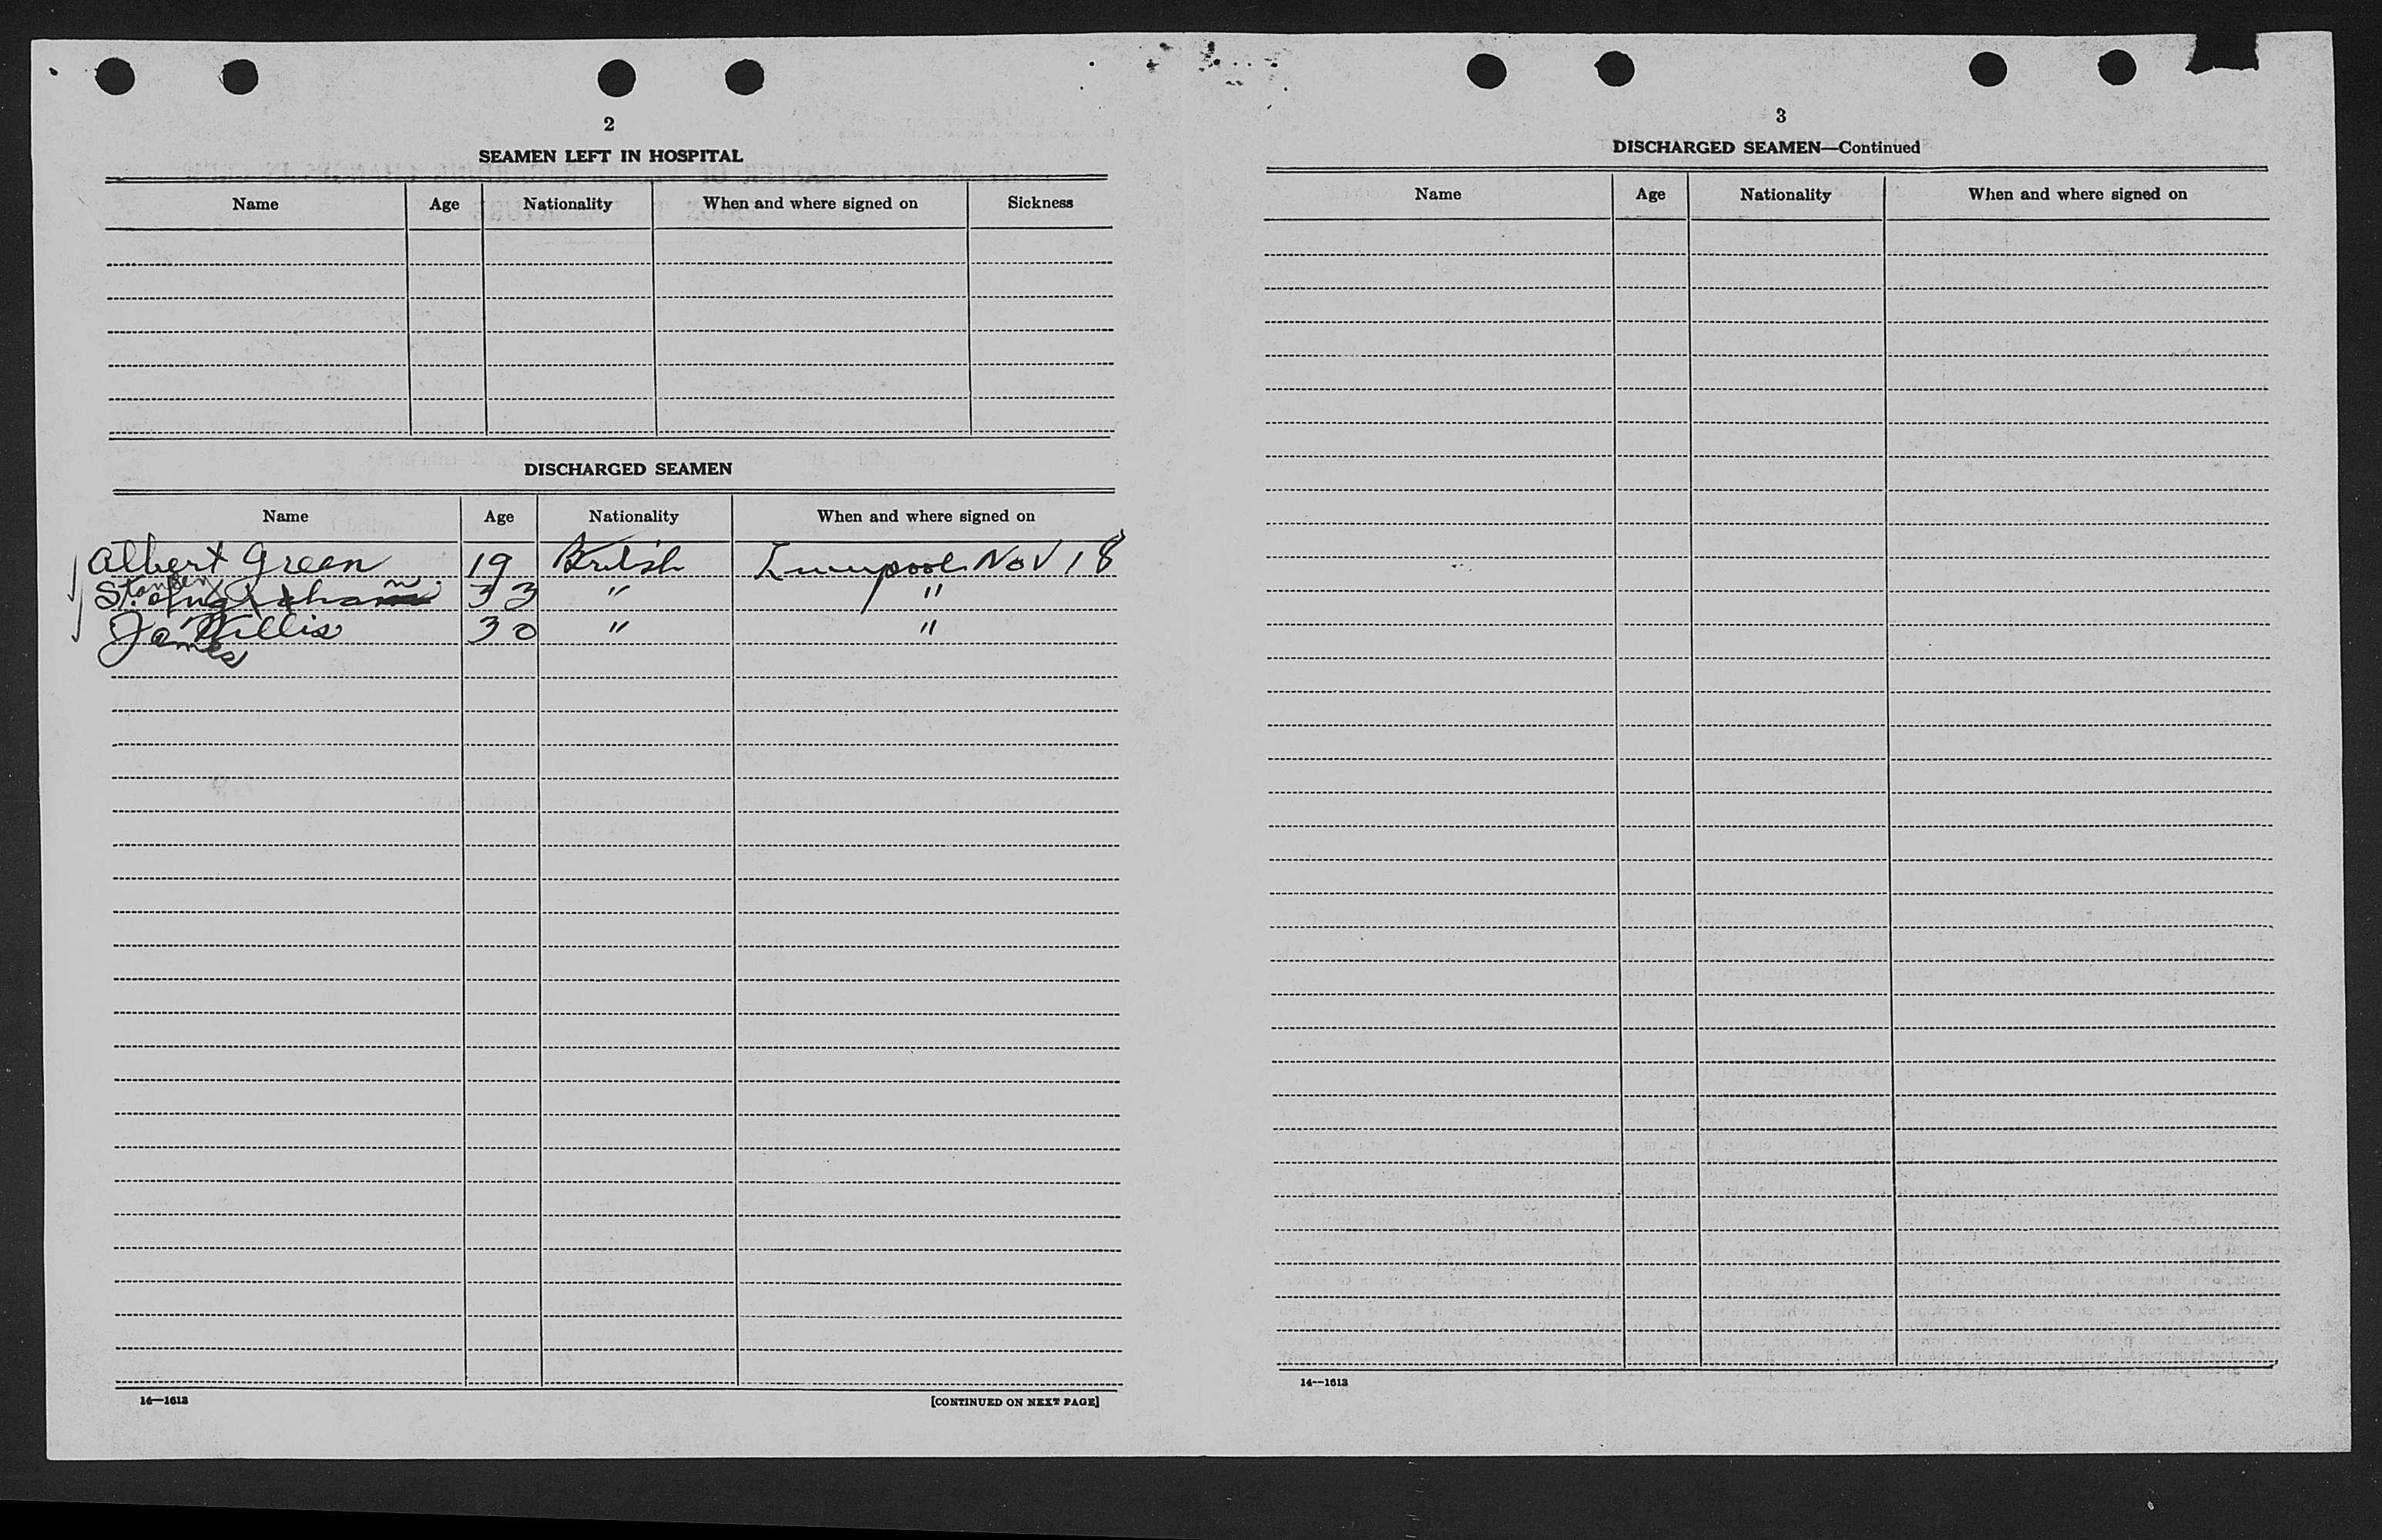 2
SEAMEN LEFT IN HOSPITAL
Name Age Nationality When and where signed on Sickness
DISCHARGED SEAMEN
Name Age Nationality When and where signed on
Albert Green 19 British Liverpool Nov 18
33 " "
James Willis 30 " "
14—1613
[CONTINUED ON NEXT PAGE]
3
DISCHARGED SEAMEN—Continued
Name Age Nationality When and where signed on
14—1613